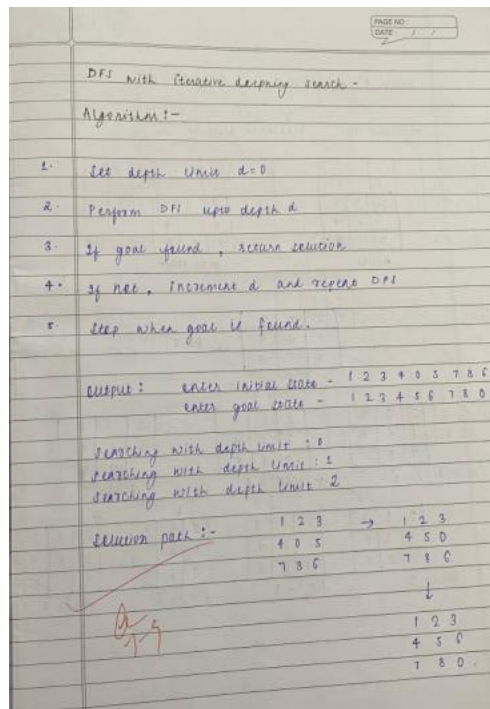 PAGE NO:
DATE: / /
DFS with iterative deepning search -
Algorithm :-
1. Set depth limit d=0
2. Perform DFS upto depth d
3. If goal found, return solution
4. If not, increment d and repeat DFS
5. Stop when goal is found.
Output : enter initial state - 1 2 3 4 0 5 7 8 6
enter goal state - 1 2 3 4 5 6 7 8 0
Searching with depth limit : 0
Searching with depth limit : 1
Searching with depth limit : 2
Solution path :- 1 2 3 → 1 2 3
4 0 5 4 5 0
7 8 6 7 8 6
↓
1 2 3
4 5 6
7 8 0.